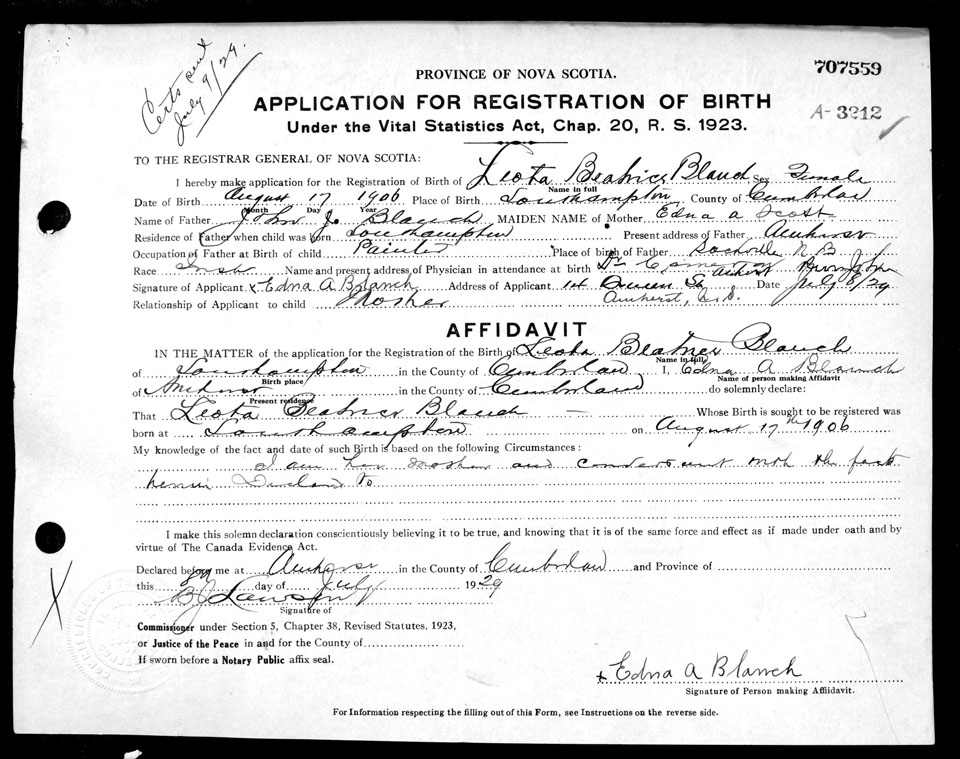 Certs sent
July 9/29.
707559
PROVINCE OF NOVA SCOTIA.
APPLICATION FOR REGISTRATION OF BIRTH
A-3212
Under the Vital Statistics Act, Chap. 20, R. S. 1923.
TO THE REGISTRAR GENERAL OF NOVA SCOTIA:
I hereby make application for the Registration of Birth of Leota Beatrice Blanch Sex Female
Name in full
Date of Birth August 17 1906 Place of Birth Southampton County of Cumberland
Month Day Year
Name of Father John J. Blanch MAIDEN NAME of Mother Edna A Scott
Residence of Father when child was born Southampton Present address of Father Amherst
Occupation of Father at Birth of child Painter Place of birth of Father Sackville N B
Race Irish Name and present address of Physician in attendance at birth Dr
Signature of Applicant x Edna A Blanch Address of Applicant 14 Queen St Date July 8/29
Relationship of Applicant to child Mother Amherst, N.S.
AFFIDAVIT
IN THE MATTER of the application for the Registration of the Birth of Leota Beatrice Blanch
Name in full
of Southampton in the County of Cumberland I, Edna A Blanch
Birth place Name of person making Affidavit
of Amherst in the County of Cumberland do solemnly declare:
Present residence
That Leota Beatrice Blanch Whose Birth is sought to be registered was
born at Southampton on August 17th 1906
My knowledge of the fact and date of such Birth is based on the following Circumstances:
I am her Mother and conversant with the facts
herein Declared to
I make this solemn declaration conscientiously believing it to be true, and knowing that it is of the same force and effect as if made under oath and by
virtue of The Canada Evidence Act.
Declared before me at Amherst in the County of Cumberland and Province of
this 8th day of July 1929
B J Lawson
Signature of
Commissioner under Section 5, Chapter 38, Revised Statutes, 1923,
or Justice of the Peace in and for the County of
If sworn before a Notary Public affix seal.
x Edna A Blanch
Signature of Person making Affidavit.
For Information respecting the filling out of this Form, see Instructions on the reverse side.